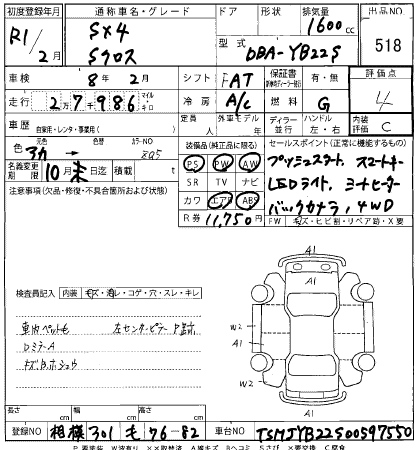 初度登録年月 通称車名・グレード ドア 形状 排気量 出品NO
R1/2月 SX4 Sクロス 1600cc 518
型式 DBA-YB22S
車検 8年2月 シフト FAT 保証書 有・無 評価点
走行 2万7986 マイル キロ 冷房 A/C 燃料 G 4
車歴 自家用・レンタ・事業用( ) 定員 人 外車モデル 年 ディーラー 並行 ハンドル 左・右 内装 C
色 元色 カラーNO 装備品(純正品に限る) セールスポイント(正常に機能するもの)
PS PW AW プッシュスタート、スマートキー
名義変更期限 10月末日迄 積載 t SR TV ナビ LEDライト、シートヒーター
注意事項(欠品・修復・不具合箇所および状態) カワ エアB ABS バックカメラ、4WD
R券 11,750円 FW キズ・ヒビ割・リペア跡・X要
A1
検査員記入 内装 キズ・汚レ・コゲ・穴・スレ・キレ
W2 W2
A1 A1
車内ペットも 左センターピラー
DミラーA
キズ・ホシュウ
A1
長さ cm 幅 cm 高さ cm
登録NO 相模 301 も 76-82 車台NO TSMJYB22S00597550